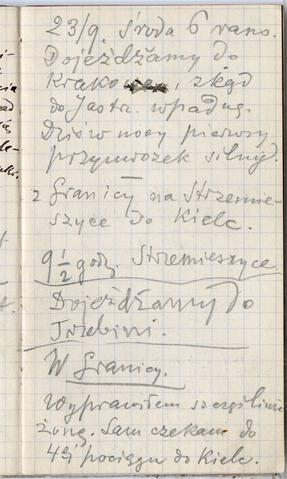 23/9. Środa 6 rano.
Dojeżdżamy do
Krakowa, skąd
do Jastrz. wpadnę.
Dziś w nocy pierwszy
przymrozek silny.
z Granicy na Strzemie-
szyce do Kielc.
9 1/2 godz. Strzemieszyce.
Dojeżdżamy do
Trzebini.
W Granicy.
Wyprawiłem szczęśliwie
żonę. Sam czekam do
4ej pociągu do Kielc.